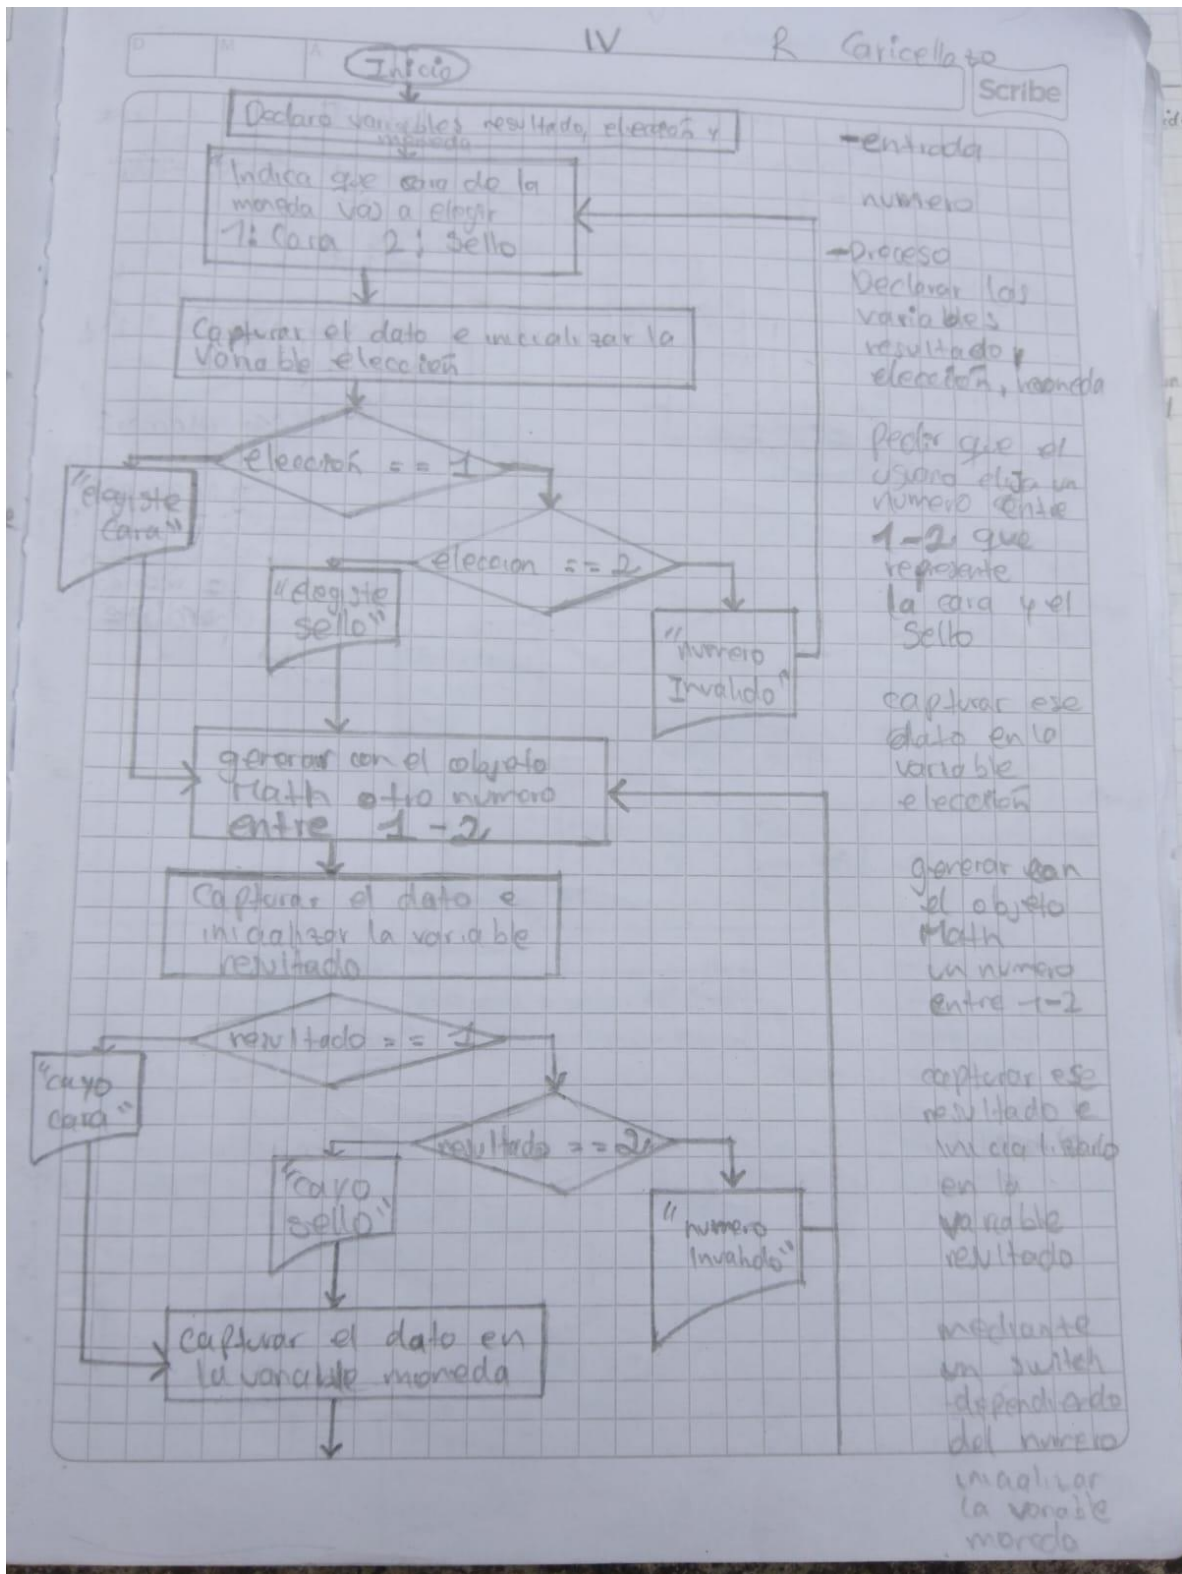 IV
R Caricellazo
D
M
A
Inicio
Scribe
Declaro variables resultado, elección y
moneda
"Indica que cara de la
moneda vas a elegir
1: Cara 2: Sello
Capturar el dato e inicializar la
variable elección
elección == 1
"elegiste
cara"
eleccion == 2
"elegiste
sello"
"numero
Invalido"
generar con el objeto
Math otro numero
entre 1-2
Capturar el dato e
inicializar la variable
resultado
resultado == 1
"cayo
cara"
resultado == 2
"cayo
sello"
"numero
Invalido"
capturar el dato en
la variable moneda
-entrada
numero
-Proceso
Declarar las
variables
resultado,
elección, moneda
pedir que el
usuario elija un
numero entre
1-2 que
represente
la cara y el
sello
capturar ese
dato en la
variable
elección
generar con
el objeto
Math
un numero
entre 1-2
capturar ese
resultado e
inicializarlo
en la
variable
resultado
mediante
un switch
dependiendo
del numero
la variable
moneda